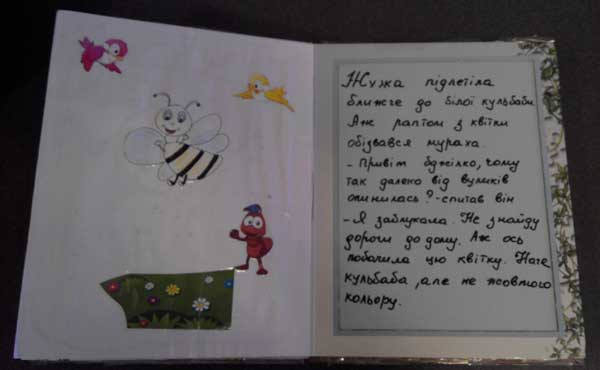 Жужа підлетіла
ближче до білої кульбаби.
Аж раптом з квітки
обізвався мураха.
- Привіт бджілко, чому
так далеко від вуликів
опинилась? - спитав він
- Я заблукала. Не знайду
дороги до дому. Аж ось
побачила цю квітку. Наче
кульбаба, але не жовтого
кольору.